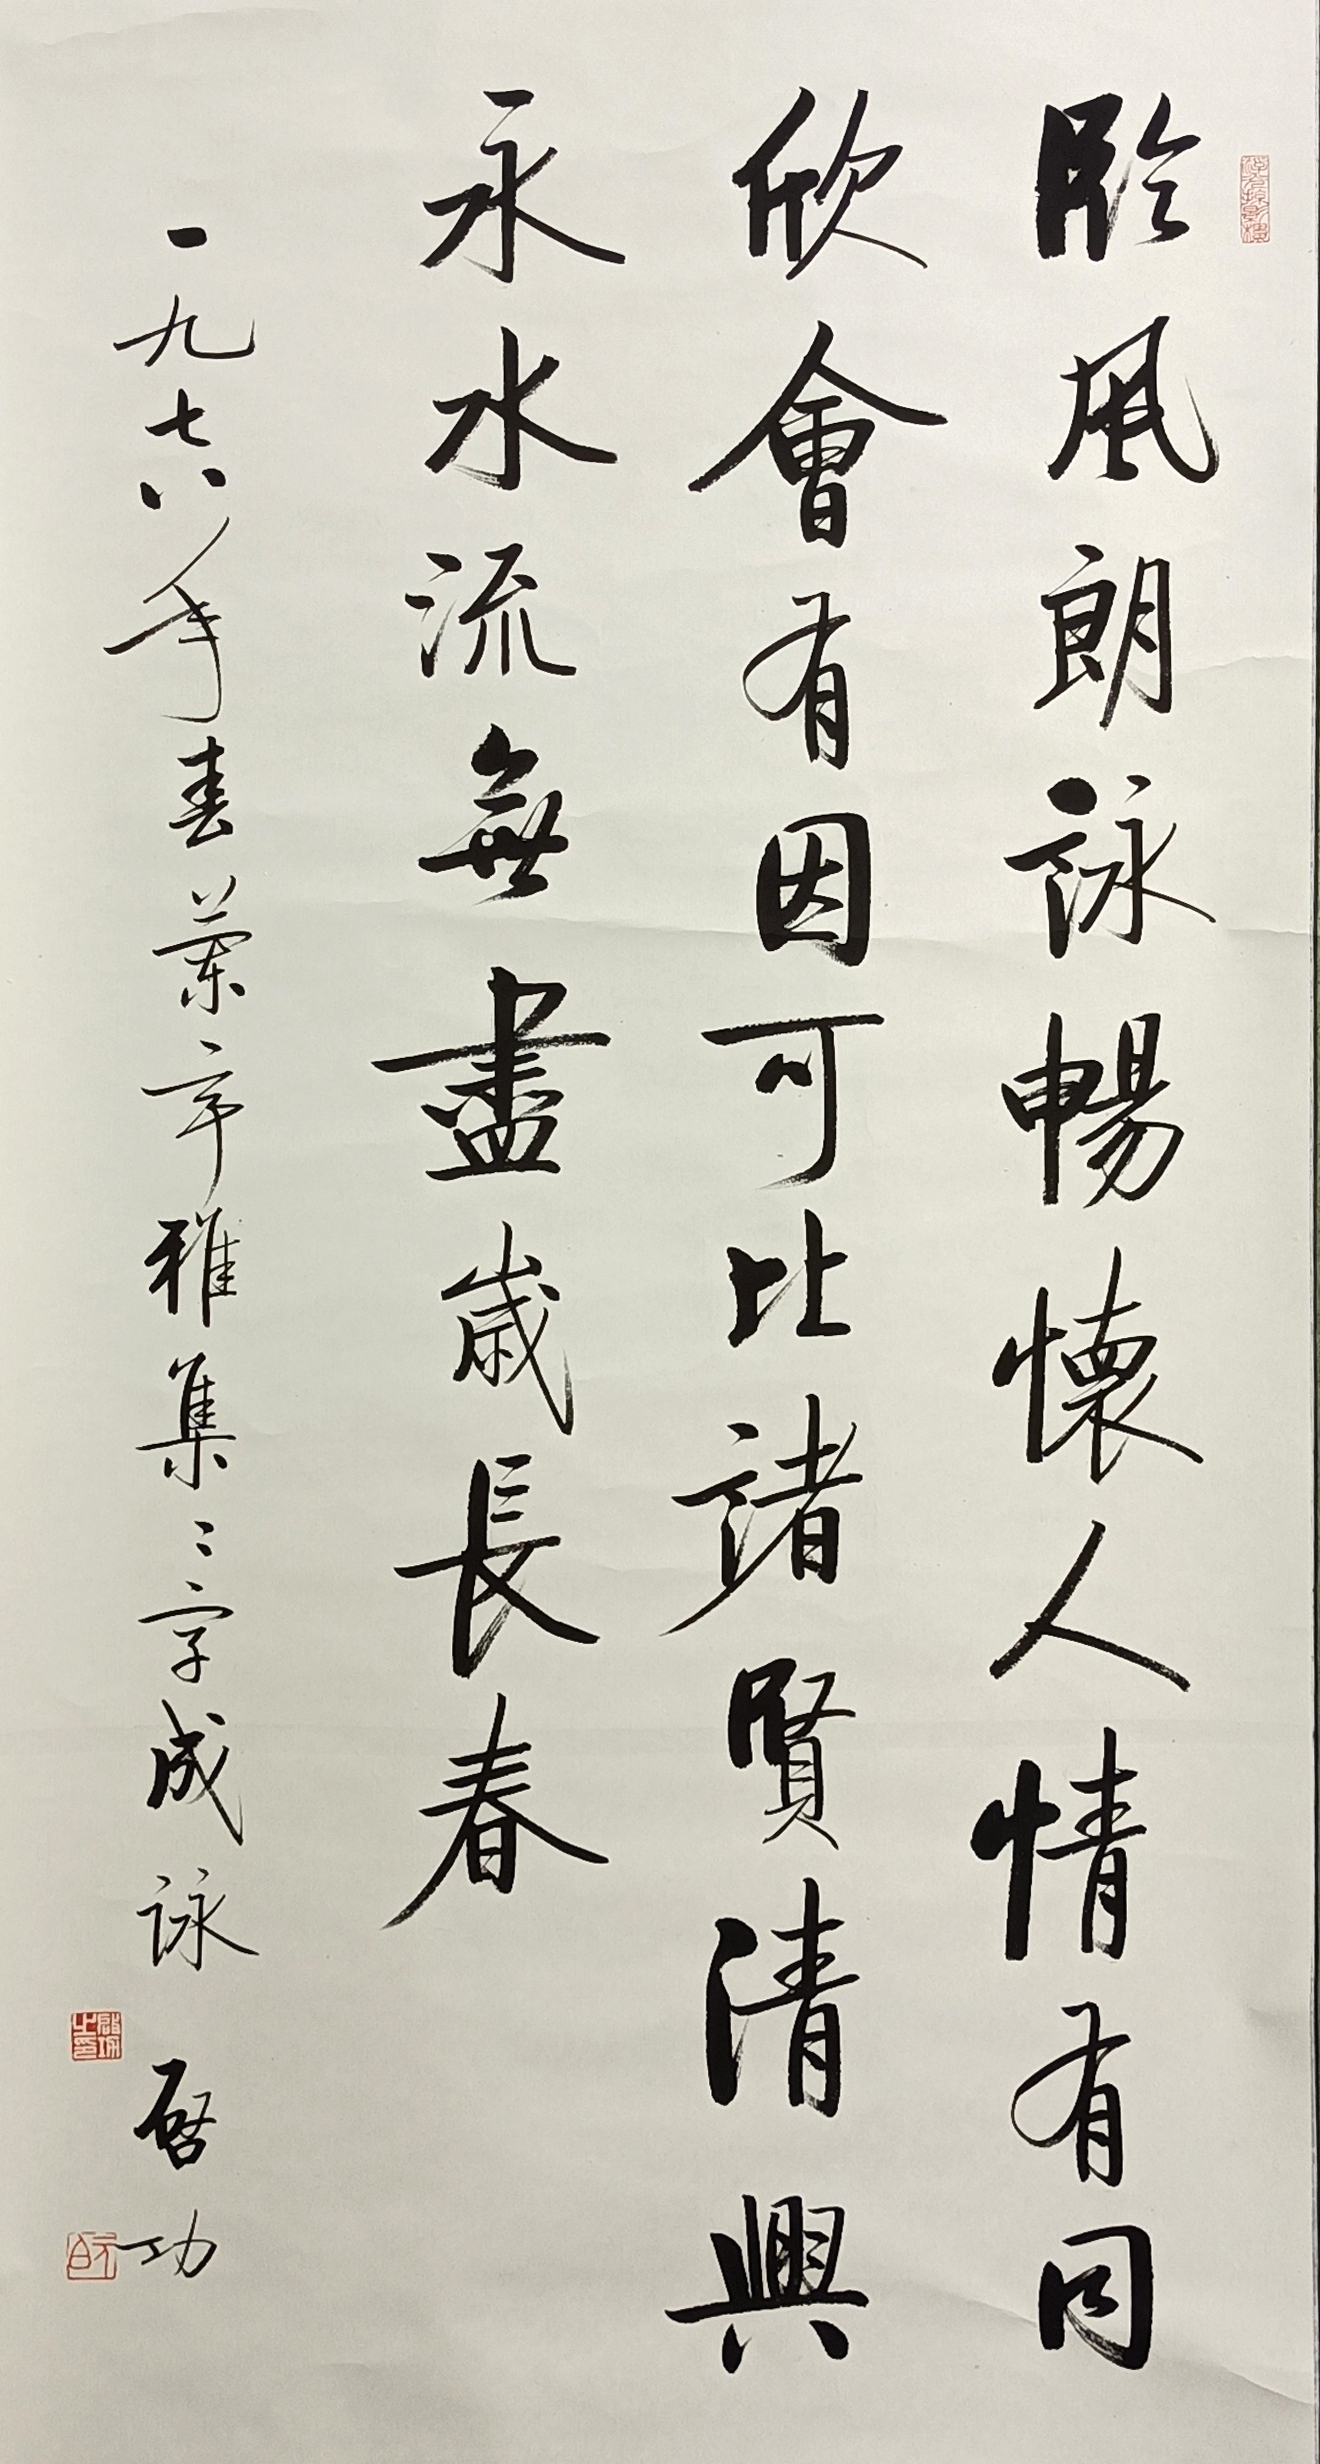 臨風朗詠暢懷人情有同
欣會有因可比諸賢清興
永水流無盡歲長春
一九七八年春蘭亭雅集〻字成詠
啓功
啟功之印
元白